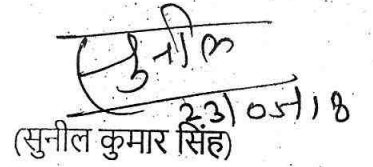 सुनील
23/05/18
(सुनील कुमार सिंह)